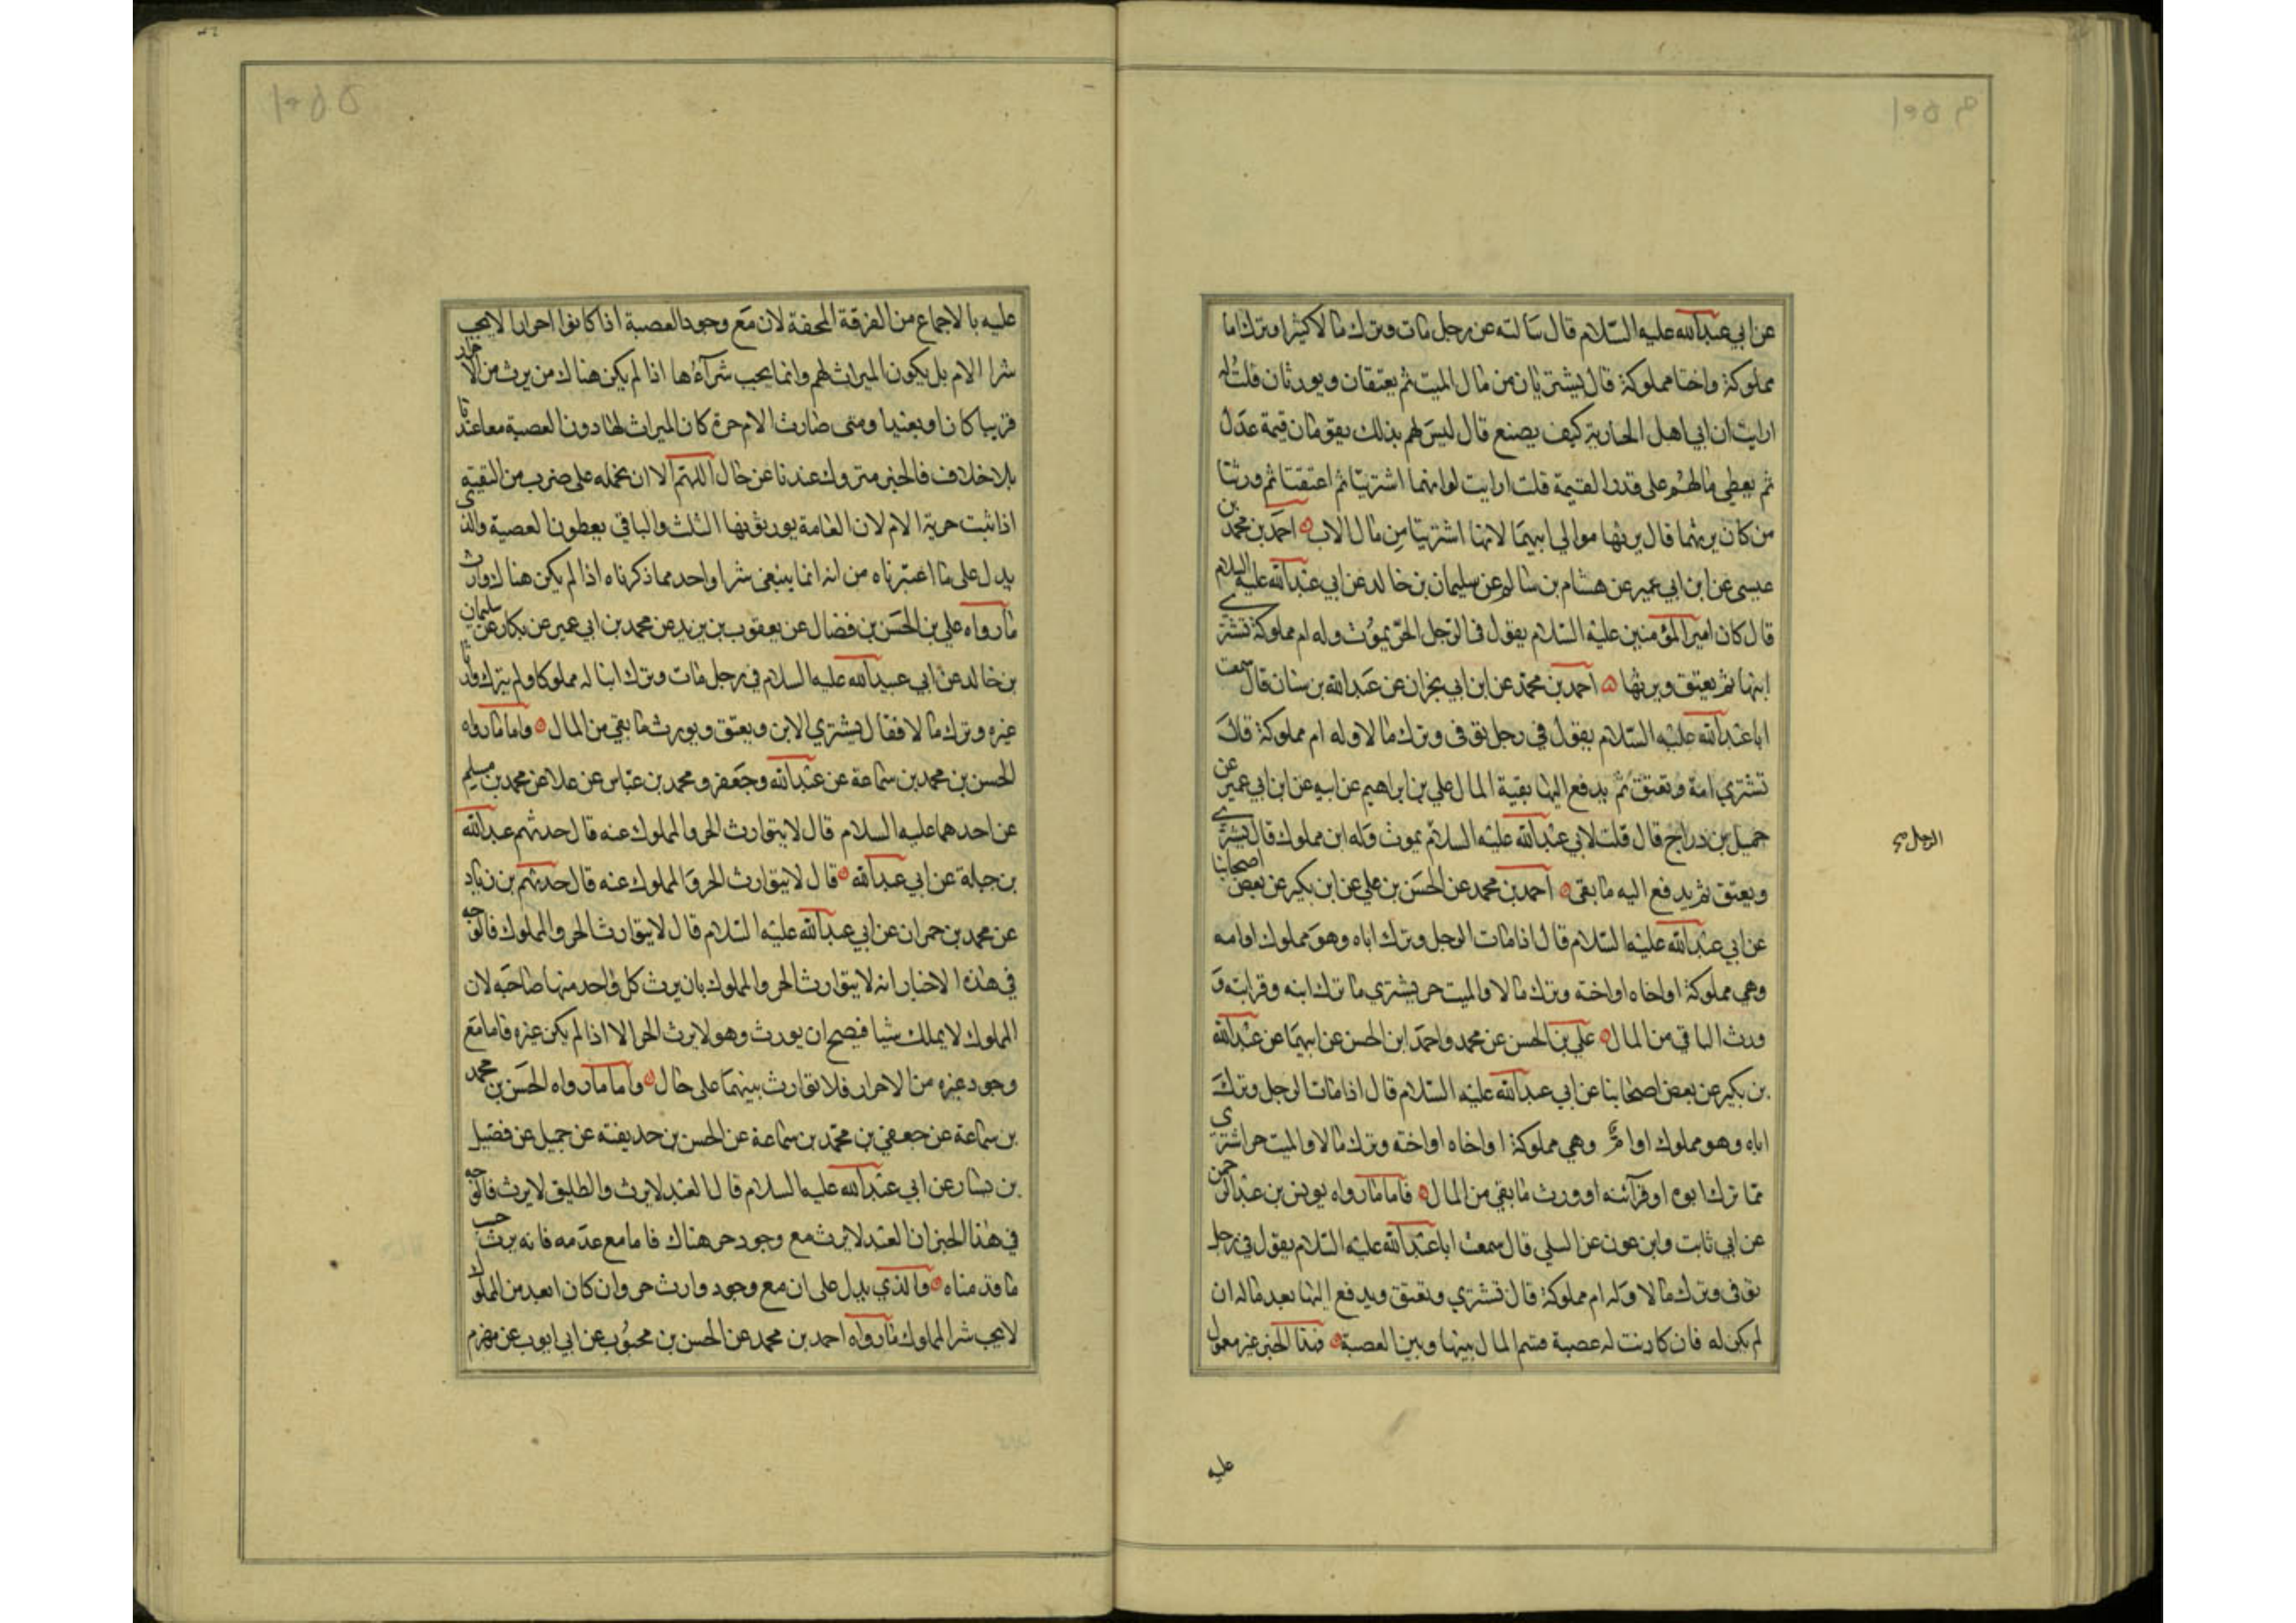 عن ابي عبدالله عليه السلام قال سالته عن رجل مات وترك مالا كثيرا وترك اما
مملوكة واختا مملوكة قال يشتريان من مال الميت ثم يعتقان ويورثان قلت له
ارايت ان ابى اهل الجارية كيف يصنع قال ليس لهم بذلك يقومان قيمة عدل
ثم يعطى مالهم على قدر القيمة قلت ارايت لو انهما اشتريتا ثم اعتقتا ثم ورثتا
من كان يرثهما قال يرثها موالي ابيهما لانها اشتريتا من مال الاب احمد بن محمد بن
عيسى عن ابن ابي عمير عن هشام بن سالم عن سليمان بن خالد عن ابي عبدالله عليه السلام
قال كان امير المؤمنين عليه السلام يقول في الرجل الحر يموت وله ام مملوكة تشترى
ابنها ثم يعتق ويرثها احمد بن محمد عن ابن ابي نجران عن عبدالله بن سنان قال سمعت
ابا عبدالله عليه السلام يقول في رجل توفى وترك مالا وله ام مملوكة قال
تشتري امة وتعتق ثم يدفع اليها بقية المال علي بن ابراهيم عن ابيه عن ابن ابي عمير عن
جميل بن دراج قال قلت لابي عبدالله عليه السلام يموت وله ابن مملوك قال يشترى
الرجل صح
ويعتق ثم يدفع اليه ما بقى احمد بن محمد عن الحسن بن علي عن ابن بكير عن بعض اصحابنا
عن ابي عبدالله عليه السلام قال اذا مات الرجل وترك اباه وهو مملوك او امه
وهي مملوكة او اخاه او اخته وترك مالا والميت حر يشتري ما ترك ابنه وقرابته و
ورث الباقي من المال علي بن الحسن عن محمد واحمد ابن الحسن عن ابيهما عن عبدالله
بن بكير عن بعض اصحابنا عن ابي عبدالله عليه السلام قال اذا مات الرجل وترك
اباه وهو مملوك او امه وهي مملوكة او اخاه او اخته وترك مالا والميت حر اشتري
مما ترك ابوه او قرآئبه او ورث ما بقي من المال فاما ما رواه يونس بن عبد الرحمن
عن ابي ثابت وابن عون عن السلي قال سمعت ابا عبدالله عليه السلام يقول في رجل
توفى وترك مالا وله ام مملوكة قال تشتري وتعتق ويدفع اليها بعد ماله ان
لم يكن له فان كانت له عصبة قسم المال بينها وبين العصبة فهذا الخبر غير معمول
عليه
عليه بالاجماع من الفرقة المحقة لان مع وجود العصبة اذا كانوا احرارا لا يجب
شرا الام بل يكون الميراث لهم وانما يجب شرآءها اذا لم يكن هناك من يرث من الاحرار
قريبا كان او بعيدا ومتى صارت الام حرة كان الميراث لها دون العصبة معاعندنا
بلا خلاف فالخبر متروك عندنا عن حال اللهم الا ان نحمله على ضرب من التقية
اذا ثبت حرية الام لان العامة يورثونها الثلث والباقي يعطون العصبة والذى
يدل على ما اعتبرناه من انه انما ينبغى شرا واحد مما ذكرناه اذا لم يكن هناك وارث
ما رواه علي بن الحسن بن فضال عن يعقوب بن يزيد عن محمد بن ابي عمير عن بكار عن سليمان
بن خالد عن ابي عبدالله عليه السلام في رجل مات وترك ابنا له مملوكا ولم يترك وارثا
غيره وترك مالا فقال يشتري الابن ويعتق ويورث ما بقي من المال واما ما رواه
الحسن بن محمد بن سماعة عن عبدالله وجعفر ومحمد بن عباس عن علا عن محمد بن مسلم
عن احدهما عليه السلام قال لا يتوارث الحر والمملوك عنه قال حدثهم عبدالله
بن جبلة عن ابي عبدالله قال لا يتوارث الحر والمملوك عنه قال حدثهم بن زياد
عن محمد بن حمران عن ابي عبدالله عليه السلام قال لا يتوارث الحر والمملوك فالوجه
في هذه الاخبار انه لا يتوارث الحر والمملوك بان يرث كل واحد منها صاحبه لان
المملوك لا يملك شيا فيصح ان يورث وهو لا يرث الحر الا اذا لم يكن غيره فاما مع
وجود غيره من الاحرار فلا توارث بينهما على حال واما ما رواه الحسن بن محمد
بن سماعة عن جعفي بن محمد بن سماعة عن الحسن بن حذيفه عن جميل عن فضيل
بن يسار عن ابي عبدالله عليه السلام قال العبد لا يرث والطليق لا يرث فالوجه
في هذا الخبر ان العبد لا يرث مع وجود حر هناك فاما مع عدمه فانه يرث حسب
ما قدمناه والذي يدل على ان مع وجود وارث حر وان كان ابعد من المملوك
لا يجب شرا المملوك ما رواه احمد بن محمد عن الحسن بن محبوب عن ابي ايوب عن مهزم